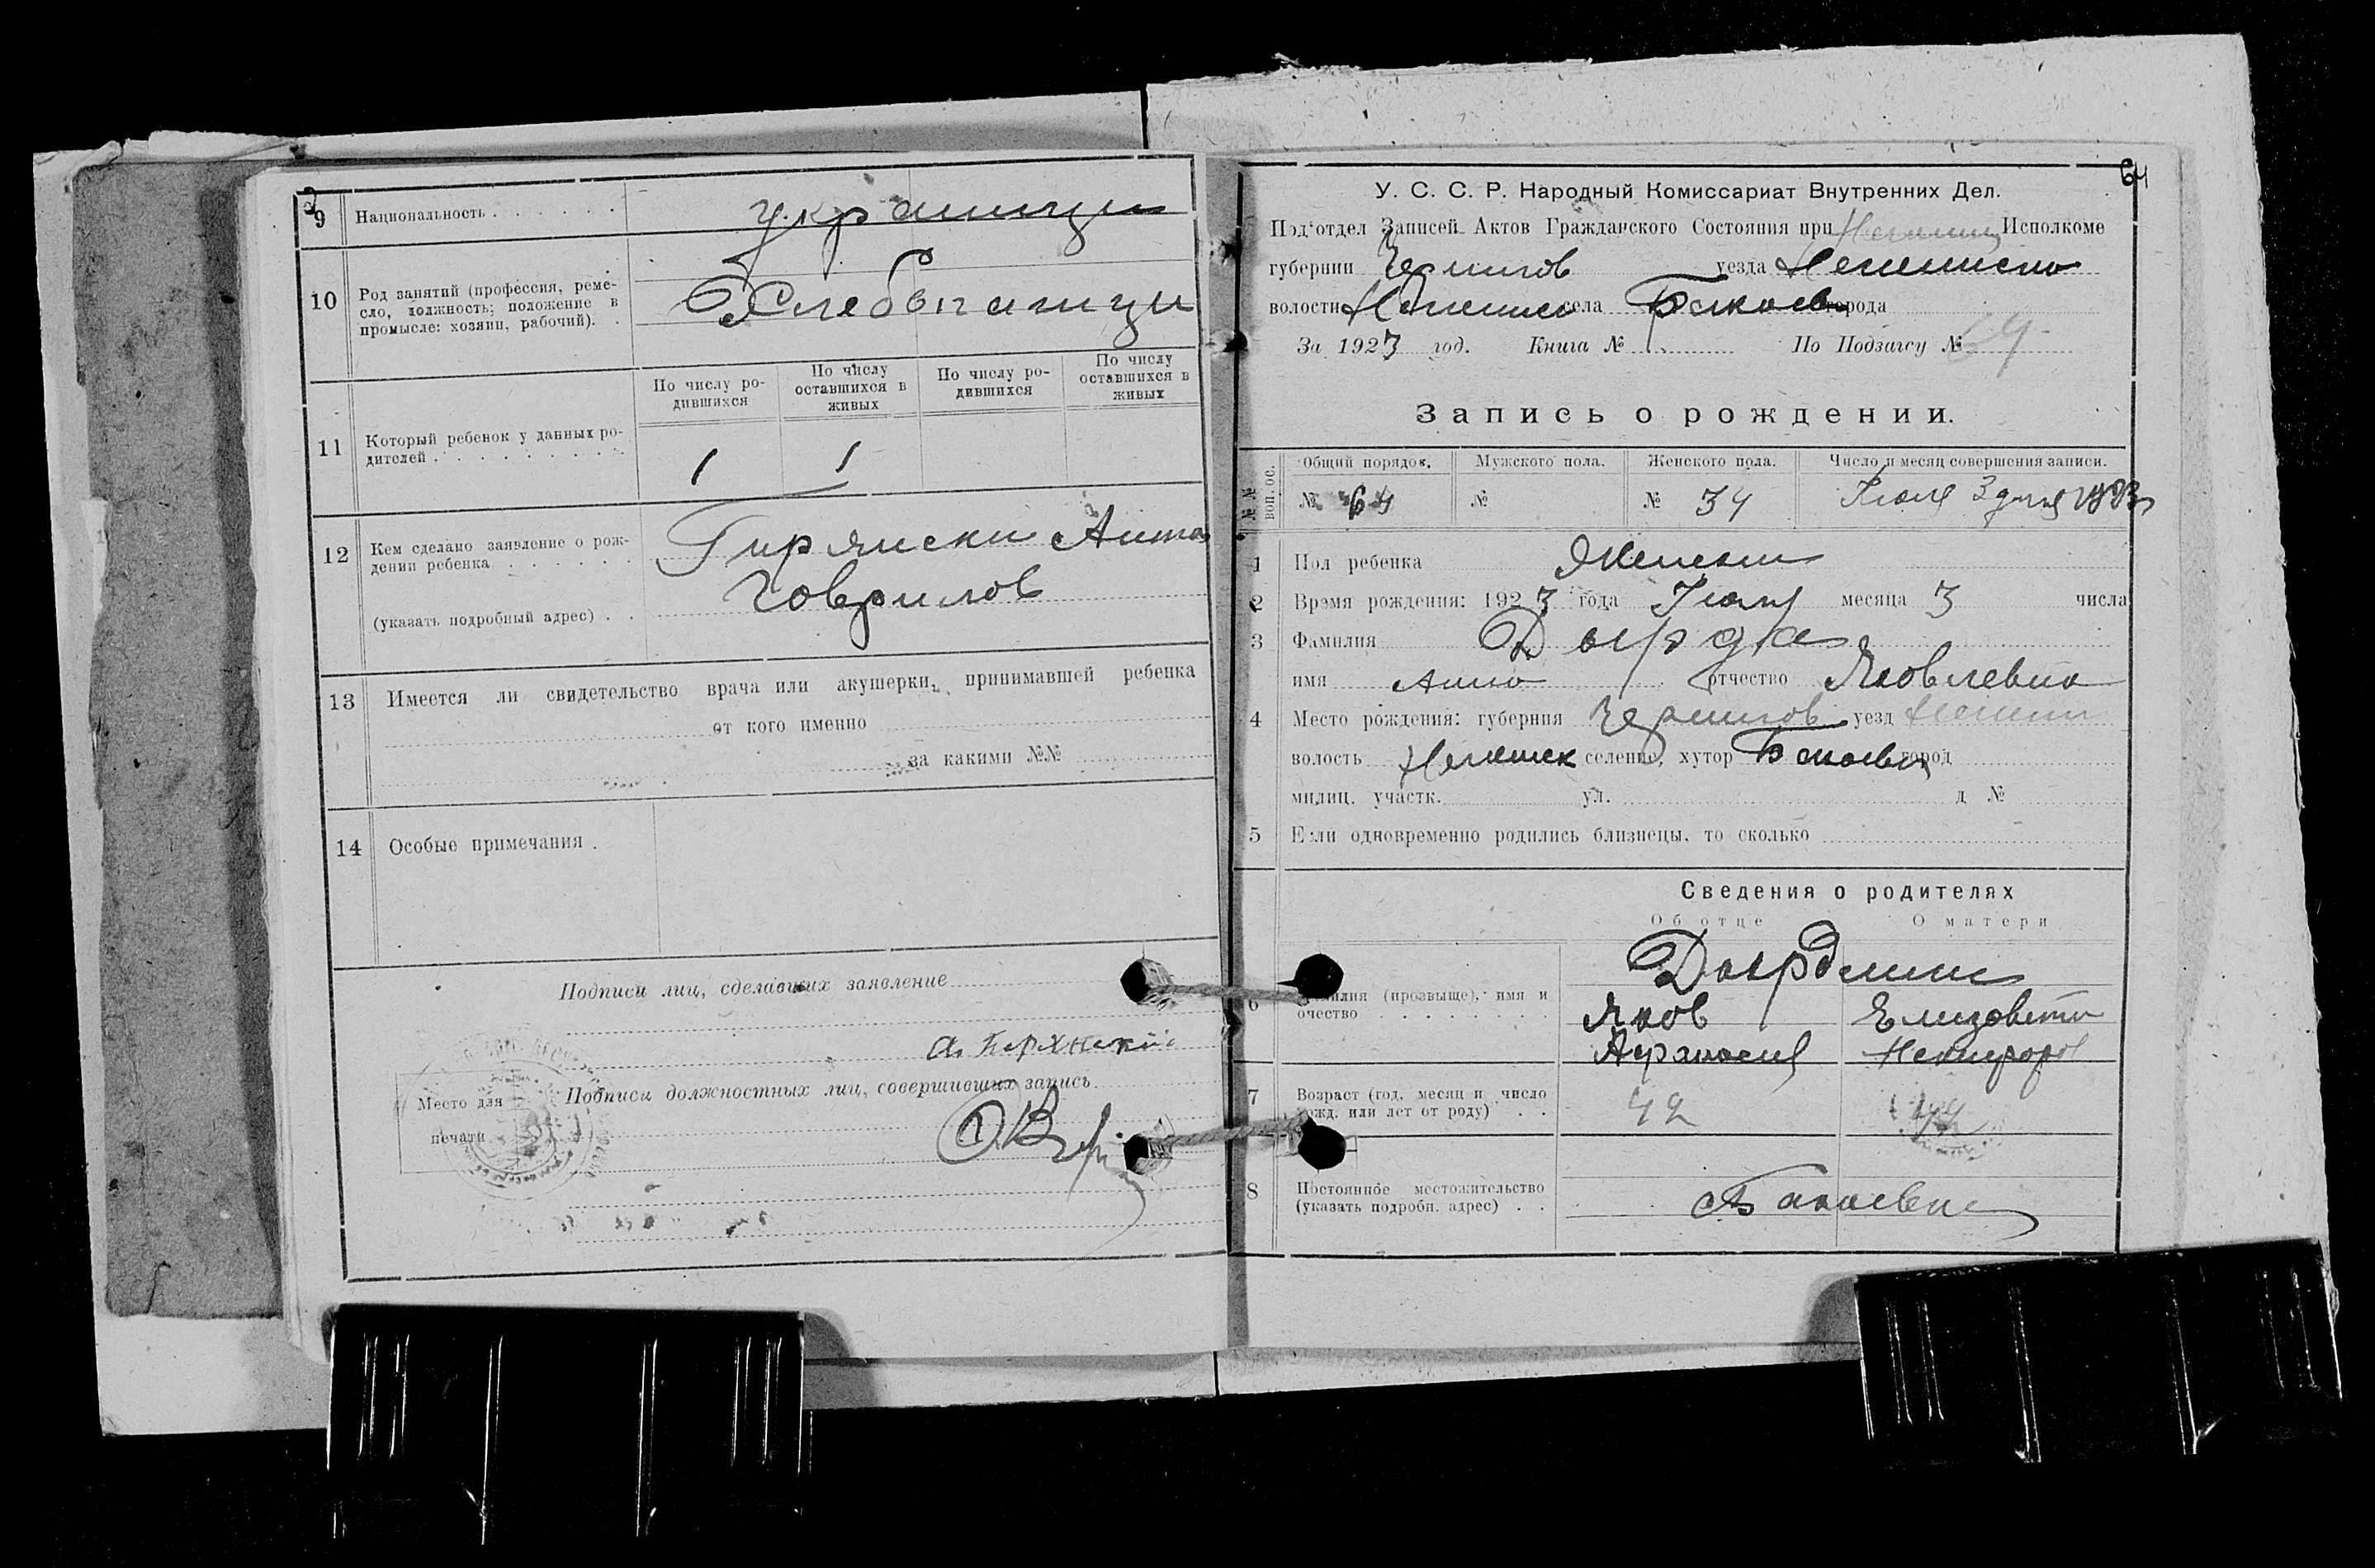 9 Национальность украинцы
10 Род занятий (профессия, реме-
сло, должность; положение в
промысле: хозяин, рабочий).
Хлебопашцы
По числу ро-
дившихся
По числу
оставшихся в
живых
По числу ро-
дившихся
По числу
оставшихся в
живых
11 Который ребенок у данных ро-
дителей
1 1
12 Кем сделано заявление о рож-
дении ребенка
(указать подробный адрес)
Говрилов
13 Имеется ли свидетельство врача или акушерки, принимавшей ребенка
от кого именно
за какими №№
14 Особые примечания
Подписи лиц, сделавших заявление
Подписи должностных лиц, совершивших запись
Место для
печати
64
У. С. С. Р. Народный Комиссариат Внутренних Дел.
Под'отдел Записей Актов Гражданского Состояния при Исполкоме
губернии Чернигов уезда
волости села города
За 1923 год. Книга № По Подзагсу №
Запись о рождении.
№№ воп. ос.
Общий порядок. Мужского пола. Женского пола. Число и месяц совершения записи.
№ 64 № № 34 Июля 3 дня
1 Пол ребенка Женски
2 Время рождения: 1923 года Июля месяца 3 числа
3 Фамилия Дырда
имя Анна отчество Яковлевна
4 Место рождения: губерния Чернигов уезд Нежин
волость селение, хутор город
милиц. участк. ул. д №
5 Если одновременно родились близнецы, то сколько
Сведения о родителях
Об отце О матери
6 Фамилия (прозвыще), имя и
очество
Яков Елизовета
7 Возраст (год, месяц и число
рожд. или лет от роду)
42
8 Постоянное местожительство
(указать подробн. адрес)